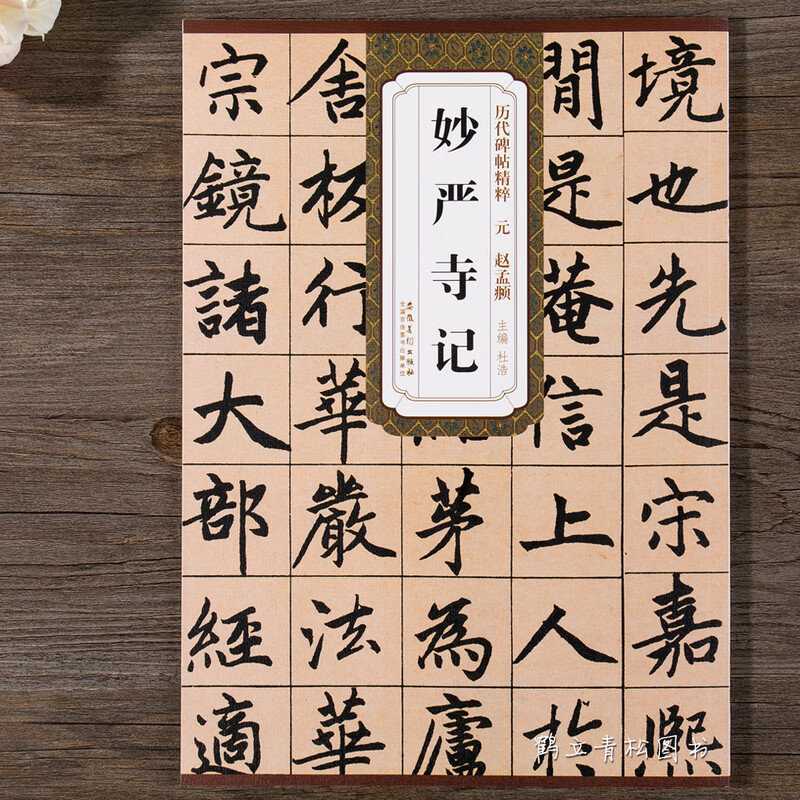 境也先是宋嘉熙
間是菴信上人於
茅為廬
舍板行華嚴法華
宗鏡諸大部經適
历代碑帖精粹 元 赵孟頫
妙严寺记
主编 杜浩
安徽美术出版社
全国百佳图书出版单位
鹤立青松图书